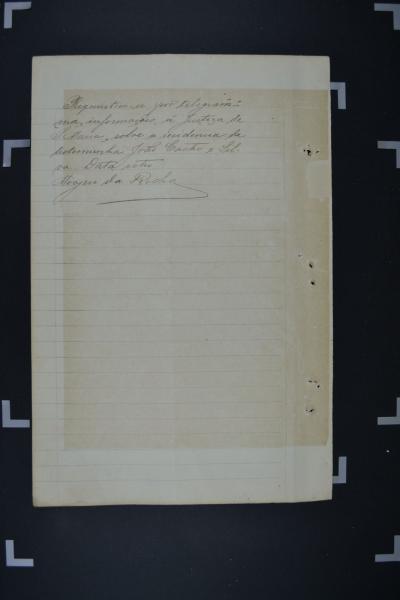 Requisitou-se por telegram-
ma, informação, á Justiça de
Sobre a residencia da
testemunha João Castro e Sil-
va. Data retro
Rocha